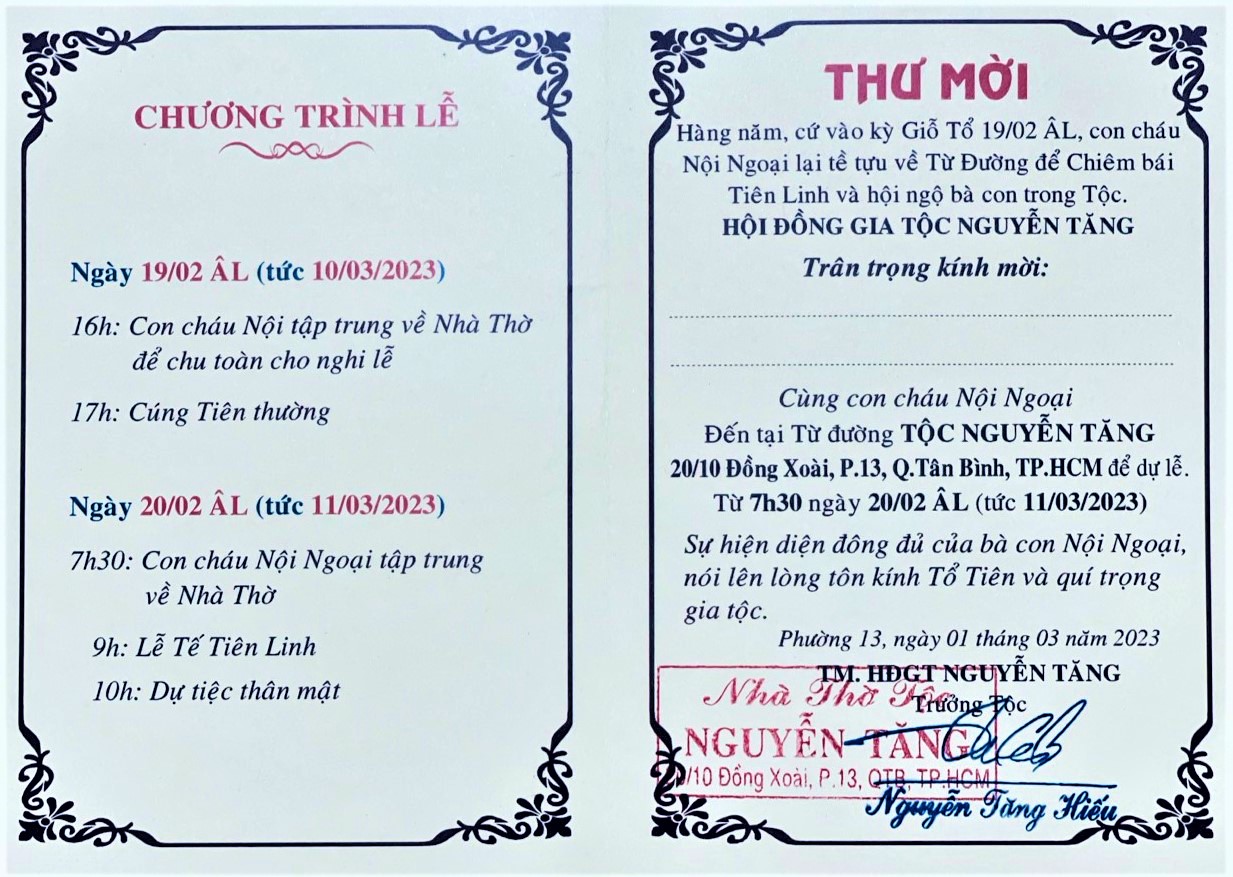 CHƯƠNG TRÌNH LỄ
Ngày 19/02 ÂL (tức 10/03/2023)
16h: Con cháu Nội tập trung về Nhà Thờ
để chu toàn cho nghi lễ
17h: Cúng Tiên thường
Ngày 20/02 ÂL (tức 11/03/2023)
7h30: Con cháu Nội Ngoại tập trung
về Nhà Thờ
9h: Lễ Tế Tiên Linh
10h: Dự tiệc thân mật
THƯ MỜI
Hàng năm, cứ vào kỳ Giỗ Tổ 19/02 ÂL, con cháu
Nội Ngoại lại tề tựu về Từ Đường để Chiêm bái
Tiên Linh và hội ngộ bà con trong Tộc.
HỘI ĐỒNG GIA TỘC NGUYỄN TĂNG
Trân trọng kính mời:
Cùng con cháu Nội Ngoại
Đến tại Từ đường TỘC NGUYỄN TĂNG
20/10 Đồng Xoài, P.13, Q.Tân Bình, TP.HCM để dự lễ.
Từ 7h30 ngày 20/02 ÂL (tức 11/03/2023)
Sự hiện diện đông đủ của bà con Nội Ngoại,
nói lên lòng tôn kính Tổ Tiên và quí trọng
gia tộc.
Phường 13, ngày 01 tháng 03 năm 2023
TM. HĐGT NGUYỄN TĂNG
Trưởng Tộc
Nhà Thờ Tộc
NGUYỄN TĂNG
20/10 Đồng Xoài, P.13, QTB, TP.HCM
Nguyễn Tăng Hiếu